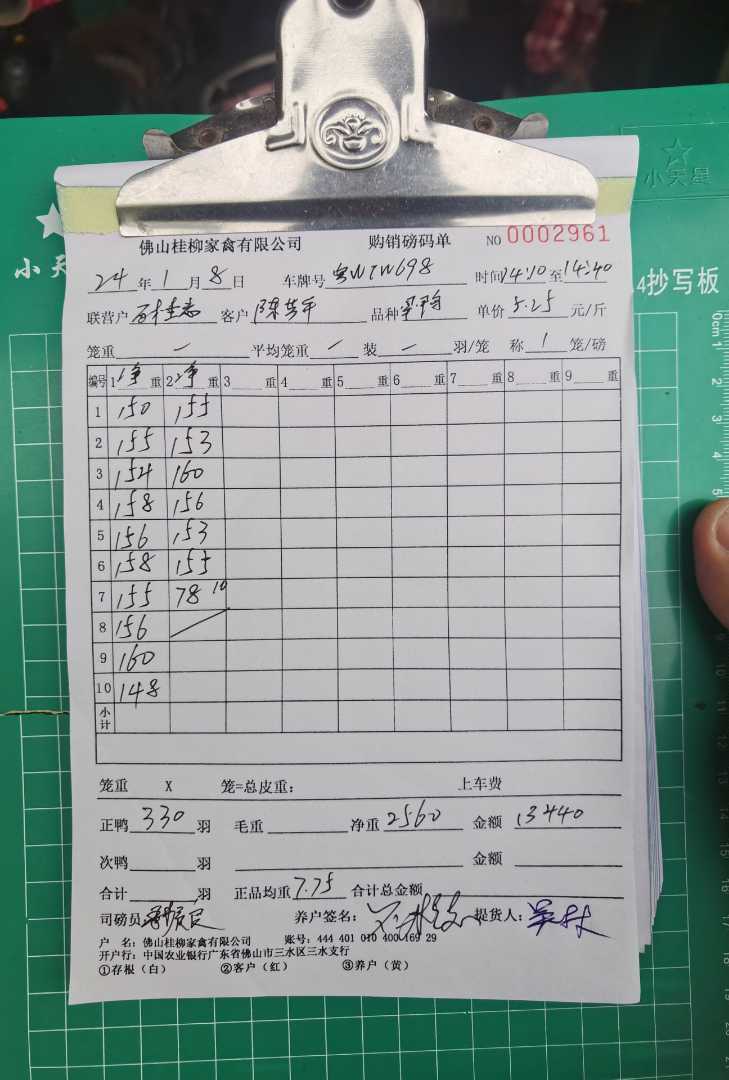 小天星
小天
4抄写板
佛山桂柳家禽有限公司 购销磅码单 NO 0002961
24 年 1 月 8 日 车牌号 粤WTW698 时间 14:10 至 14:40
联营户 客户 陈 品种 单价 5.25 元/斤
笼重 一 平均笼重 一 装 一 羽/笼 称 1 笼/磅
编号 1 净 重 2 净 重 3 重 4 重 5 重 6 重 7 重 8 重 9 重
1 150 155
2 155 153
3 154 160
4 158 156
5 156 153
6 158 155
7 155 78 10
8 156
9 160
10 148
小计
笼重 X 笼=总皮重: 上车费
正鸭 330 羽 毛重 净重 2560 金额 13440
次鸭 羽 金额
合计 羽 正品均重 7.75 合计总金额
司磅员 养户签名: 提货人:
户 名: 佛山桂柳家禽有限公司 账号: 444 401 010 400 169 29
开户行: 中国农业银行广东省佛山市三水区三水支行
①存根(白) ②客户(红) ③养户(黄)
0cm 1 2 3 4 5